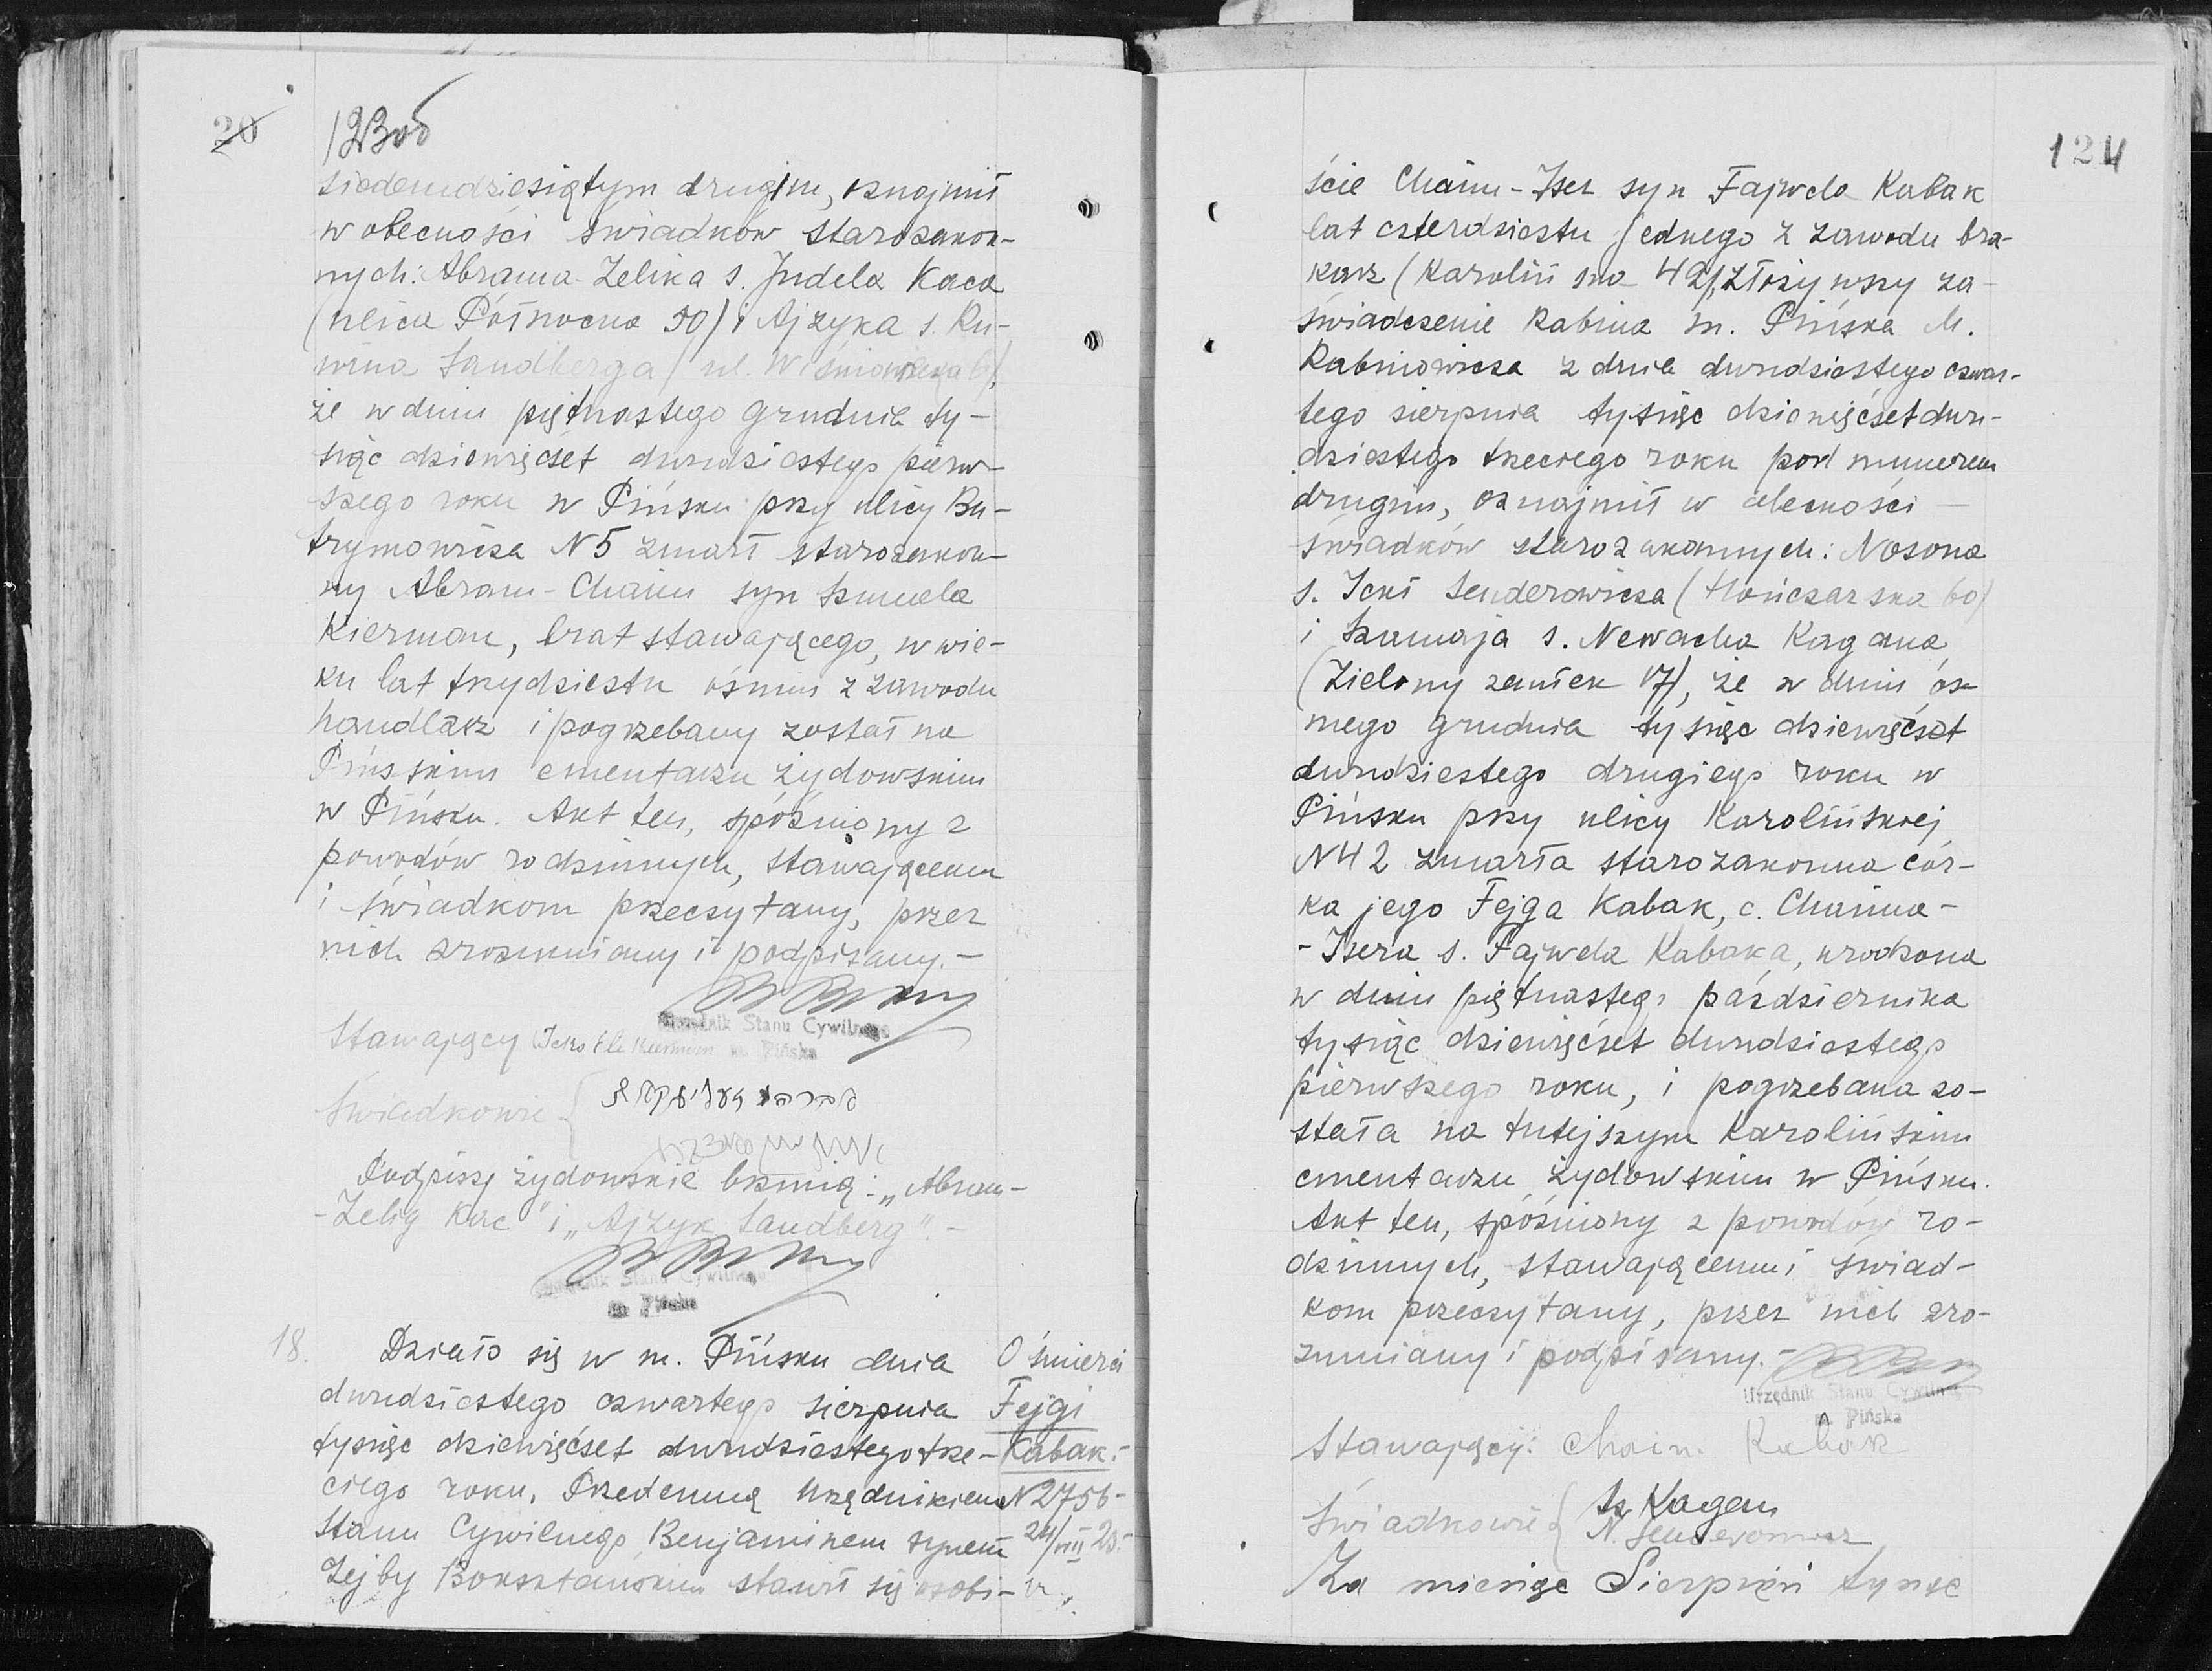 20
123об
siedemdziesiątym drugim, oznajmił
w obecności świadków starozakon-
nych: Abrama-Zelika s. Judela Kaca
(ulica Północna 50) i Ajzyka s. Ru-
wina Sandberga (ul. Wiśniowiecka 6),
że w dniu piętnastego grudnia ty-
siąc dziewięćset dwudziestego pierw-
szego roku w Pińsku przy ulicy Bu-
trymowicza N5 zmarł starozakon-
ny Abram-Chaim syn Szmuela
Kierman, brat stawającego, w wie-
ku lat trzydziestu ośmiu z zawodu
handlarz i pogrzebany został na
Pińskim cmentarzu żydowskim
w Pińsku. Akt ten, spóźniony z
powodów rodzinnych, stawającemu
i świadkom przeczytany, przez
nich zrozumiany i podpisany.-
Urzędnik Stanu Cywilnego
m. Pińska
Stawający Icko Kierman
Świadkowie {
Podpisy żydowskie brzmią: „Abram-
-Zelig Kac" i „Ajzyk Sandberg".-
Urzędnik Stanu Cywilnego
m. Pińska
18.
Działo się w m. Pińsku dnia
dwudziestego czwartego sierpnia
tysiąc dziewięćset dwudziestego trze-
ciego roku. Przedemną Urzędnikiem
Stanu Cywilnego Benjaminem synem
ZejbyBoksztańskim stawił się osobi-
O śmierci
Fejgi
Kabak.-
N2756-
24/VIII 23.-
124
ście Chaim-Iser syn Fajwela Kabak
lat czterdziestu jednego z zawodu bra-
karz (Karolińska 42), złożywszy za-
świadczenie Rabina m. Pińska M.
Rabinowicza z dnia dwudziestego czwar-
tego sierpnia tysiąc dziewięćset dwu-
dziestego trzeciego roku pod numerem
drugim, oznajmił w obecności —
świadków starozakonnych: Nosona
s. Icki Senderowicza (Hończarska 60)
i Szamaja s. Newacha Kagana
(Zielony zaułek 17), że w dniu ós-
mego grudnia tysiąc dziewięćset
dwudziestego drugiego roku w
Pińsku przy ulicy Karolińskiej
N42 zmarła starozakonna cór-
ka jego Fejga Kabak, c. Chaima-
-Isera s. Fajwela Kabaka, urodzona
w dniu piętnastego października
tysiąc dziewięćset dwudziestego
pierwszego roku, i pogrzebana zo-
stała na tutejszym Karolińskim
cmentarzu żydowskim w Pińsku.
Akt ten, spóźniony z powodów ro-
dzinnych, stawającemu i świad-
kom przeczytany, przez nich zro-
zumiany i podpisany.-
Urzędnik Stanu Cywilnego
m. Pińska
Stawający: Chaim Kabak
Świadkowie { Sz Kagan
N. Senderowicz
Za miesiąc Sierpień tysiąc